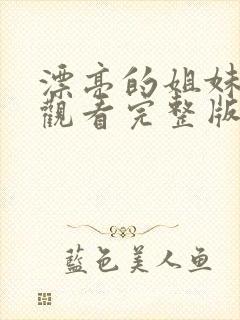 漂亮的姐妹
觀看完整版
藍色美人鱼